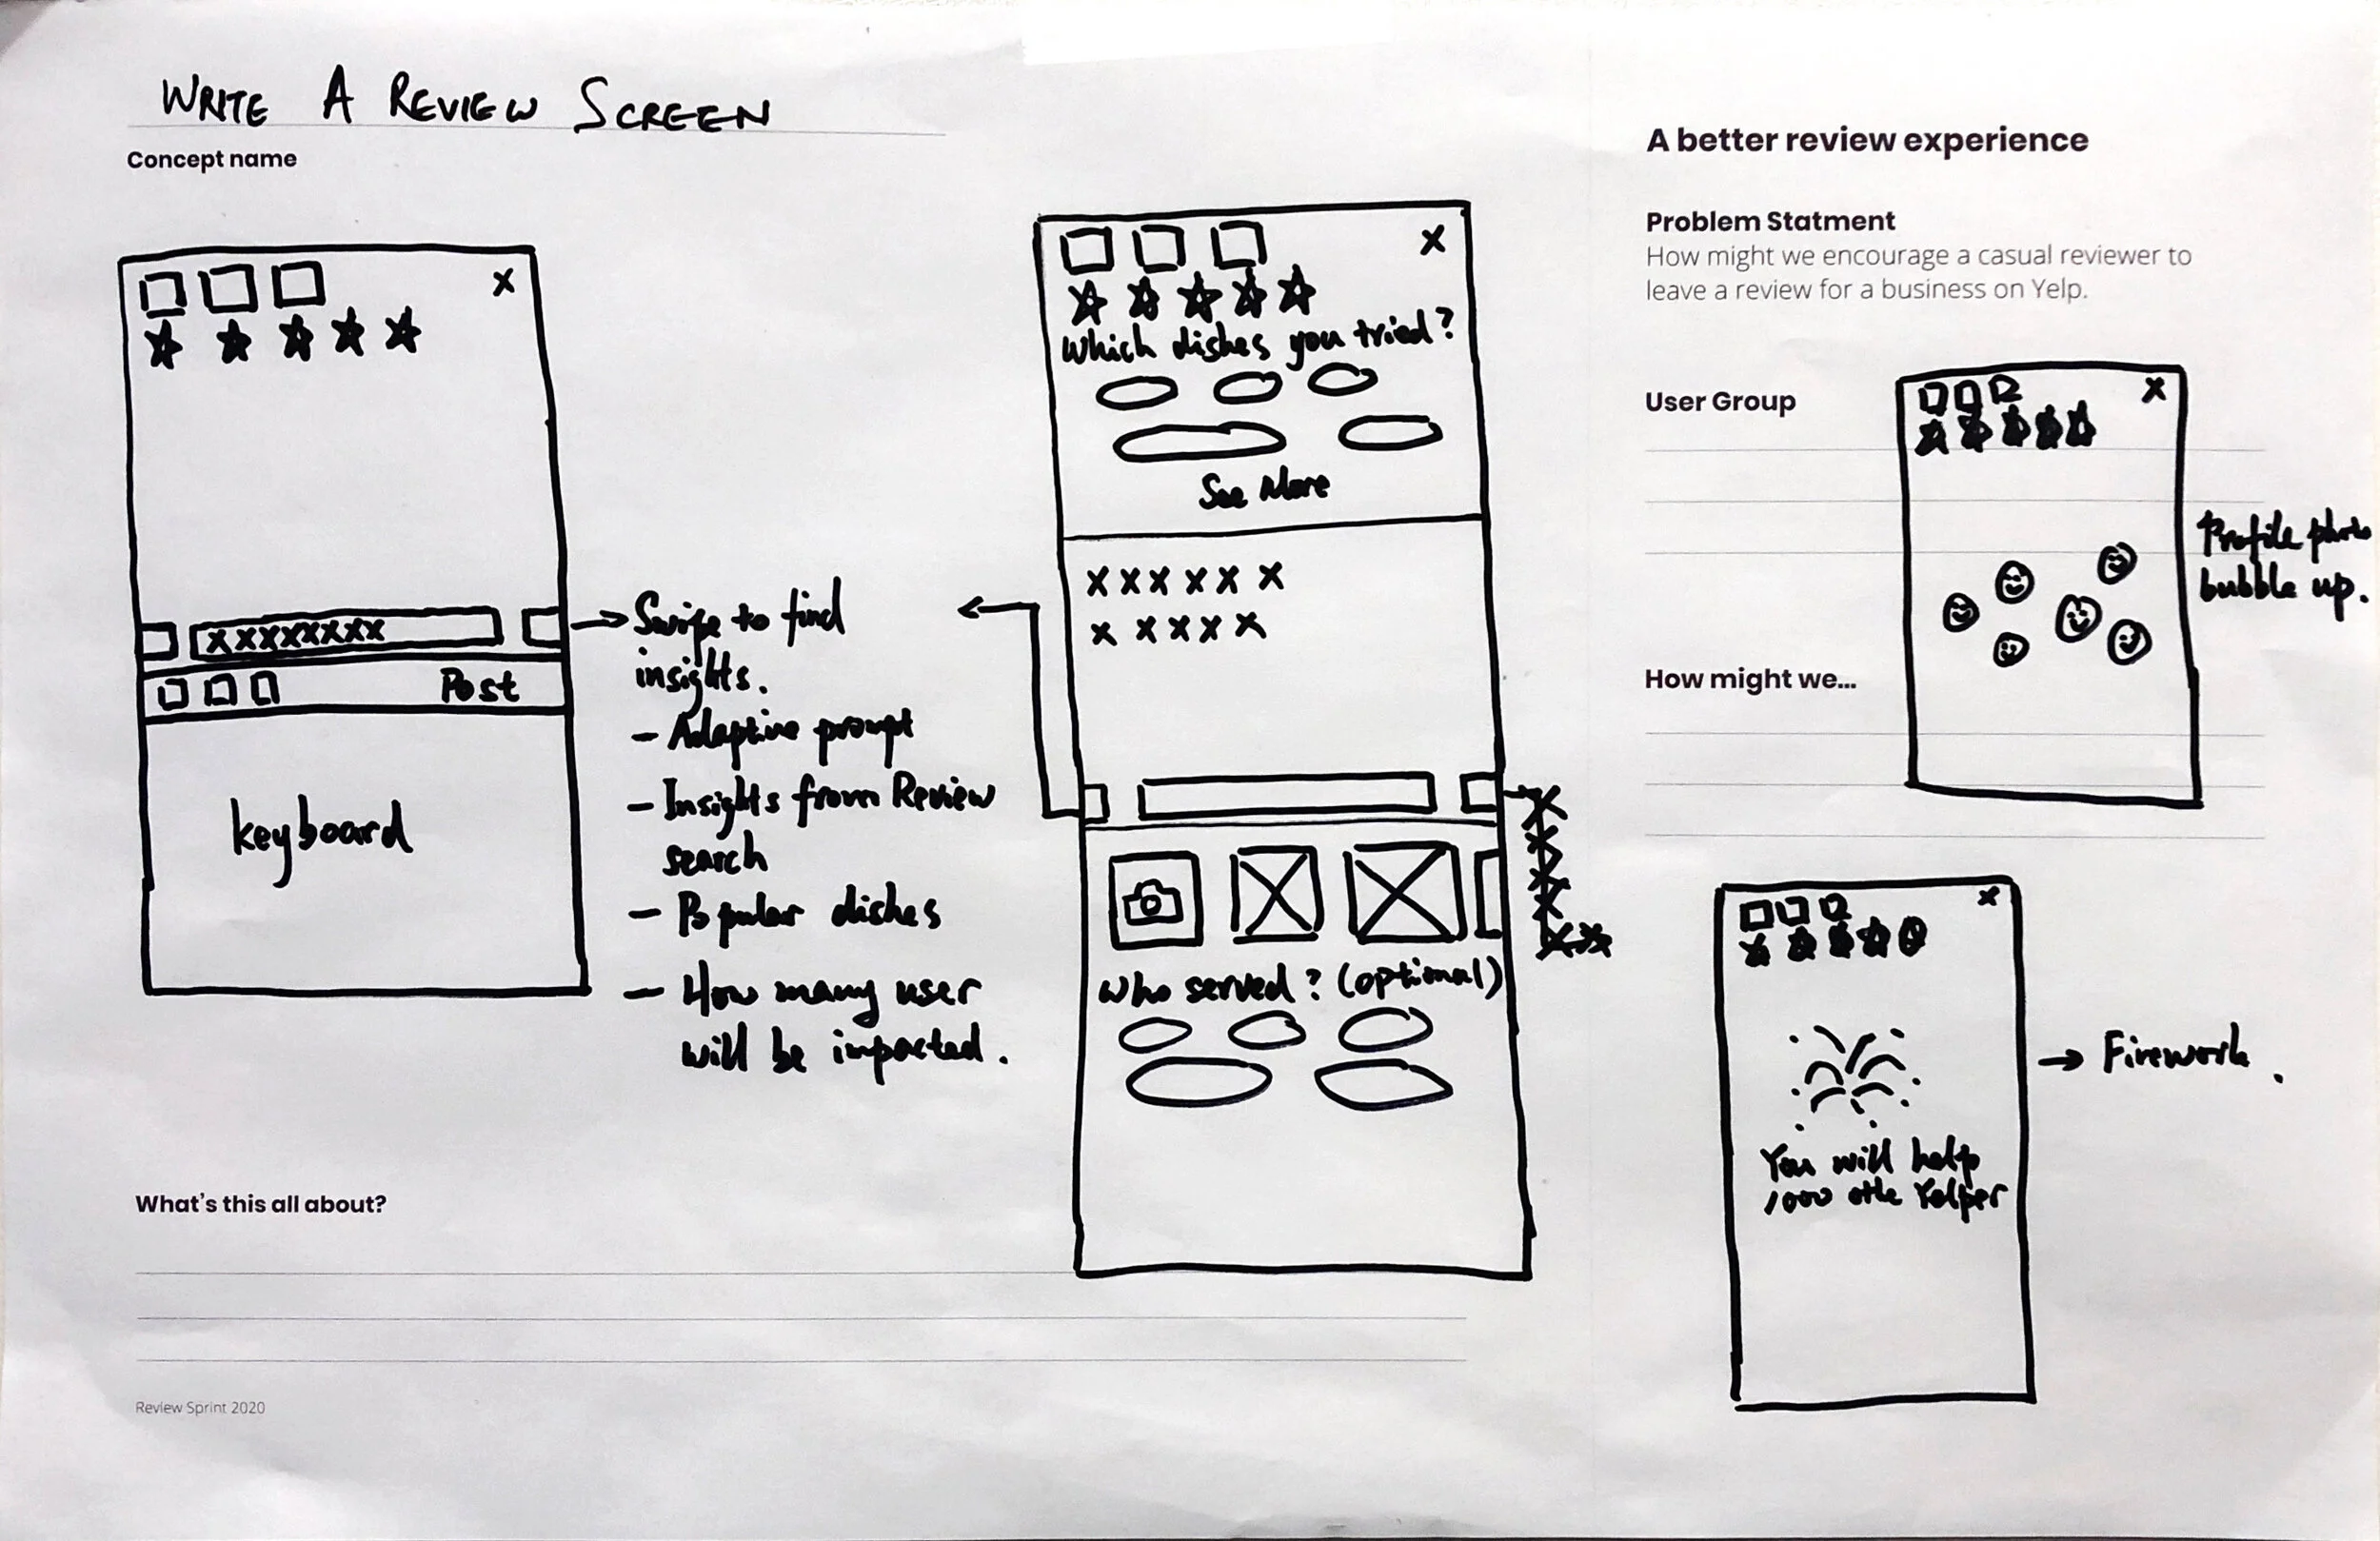 WRITE A REVIEW SCREEN
Concept name
Swipe to find
insights.
- Adaptive prompt
- Insights from Review
search
- Popular dishes
- How many user
will be impacted.
X
XXXXXXXX
Post
keyboard
X
Which dishes you tried?
See More
XXXXXX
XXXXX
Who served? (optional)
What's this all about?
Review Sprint 2020
A better review experience
Problem Statment
How might we encourage a casual reviewer to
leave a review for a business on Yelp.
User Group
X
Profile photo
bubble up.
How might we...
X
Firework.
You will help
1000 othe Yelper